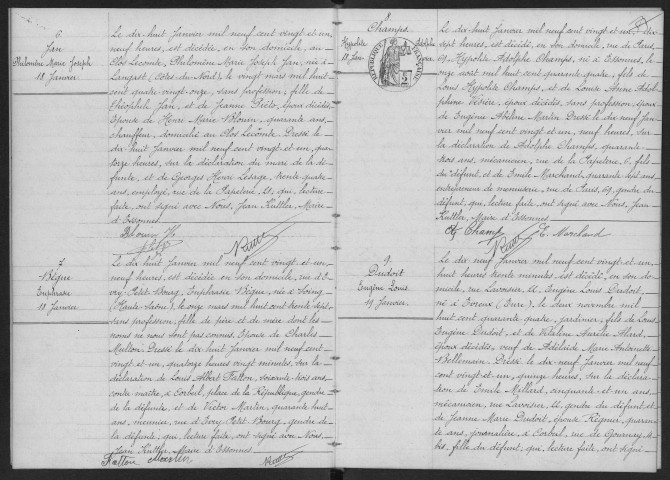 6
Jan
Philomène Marie Joseph
18 Janvier
Le dix-huit Janvier mil neuf cent vingt et un,
neuf heures, est décédée, en son domicile, au
Clos Lecomte, Philomène Marie Joseph Jan, née à
Langast (Côtes-du-Nord), le vingt mars mil huit
cent quatre-vingt-onze, sans profession, fille de
Théophile Jan, et de Jeanne Préto, époux décédés,
Epouse de Henri Marie Blouin, quarante ans,
chauffeur, domicilié au Clos Lecomte. Dressé le
dix-huit Janvier mil neuf cent vingt et un, qua-
torze heures, sur la déclaration du mari de la dé-
funte, et de Georges Henri Lesage, trente quatre
ans, employé, rue de la Papeterie, 21, qui, lecture
faite, ont signé avec Nous, Jean Kuttler, Maire
d'Essonnes
Blouin H
7
Bègue
Euphrasie
18 Janvier
Le dix-huit Janvier mil neuf cent vingt et un,
neuf heures, est décédée en son domicile, rue d'E-
vry-Petit-Bourg, Euphrasie Bègue, née à Soing
(Haute Saône) le onze mars mil huit cent trente sept
sans profession, fille de père et de mère dont les
noms ne nous sont pas connus. Epouse de Charles
Multon. Dressé le dix-huit Janvier mil neuf cent
vingt-et-un, quatorze heures vingt minutes, sur la
déclaration de Louis Albert Fatton, soixante-trois ans,
contre maître, à Corbeil, place de la République, gendre
de la défunte, et de Victor Martin, quarante huit
ans, meunier, rue d'Evry-Petit-Bourg, gendre de
la défunte, qui, lecture faite, ont signé avec Nous,
Jean Kuttler, Maire d'Essonnes
Fatton Martin
8
Champs
Hypolite Adolphe
18 Janv
RÉPUBLIQUE FRANÇAISE
Le dix-huit Janvier mil neuf cent vingt et un,
sept heures, est décédé, en son domicile, rue de Paris,
69, Hypolite Adolphe Champs, né à Essonnes, le
onze août mil huit cent quarante quatre, fils de
Louis Hypolite Champs, et de Louise Anne Adol-
phine époux décédés, sans profession, époux
de Eugénie Adeline Martin. Dressé le dix-huit Jan-
vier mil neuf cent vingt et un, neuf heures, sur
la déclaration de Adolphe Champs, quarante-
trois ans, mécanicien, rue de la Papeterie, 6, fils
du défunt, et de Emile Marchand, quarante sept ans,
entrepreneur de menuiserie, rue de Paris, 69, gendre du
défunt, qui, lecture faite, ont signé avec Nous, Jean
Kuttler, Maire d'Essonnes
Champs E. Marchand
9
Dudoit
Eugène Louis
19 Janvier.
Le dix neuf Janvier mil neuf cent vingt et un,
huit heures trente minutes, est décédé, en son do-
micile, rue Lavoisier, Eugène Louis Dudoit,
né à Evreux (Eure), le deux novembre mil
huit cent quarante quatre, jardinier, fils de Louis
Eugène Dudoit, et de Aurélie Alard,
époux décédés, veuf de Adélaïde Marie Antoinette
Bellemain. Dressé le dix-neuf Janvier mil neuf
cent vingt et un, quinze heures, sur la déclara-
tion de Emile Mellard, cinquante-et-un ans,
mécanicien, rue Lavoisier, gendre du défunt, et
de Jeanne Marie Dudoit, épouse Régnier, quaran-
te ans, journalière, à Corbeil, rue de Gournay,
bis, fille du défunt, qui, lecture faite, ont signé